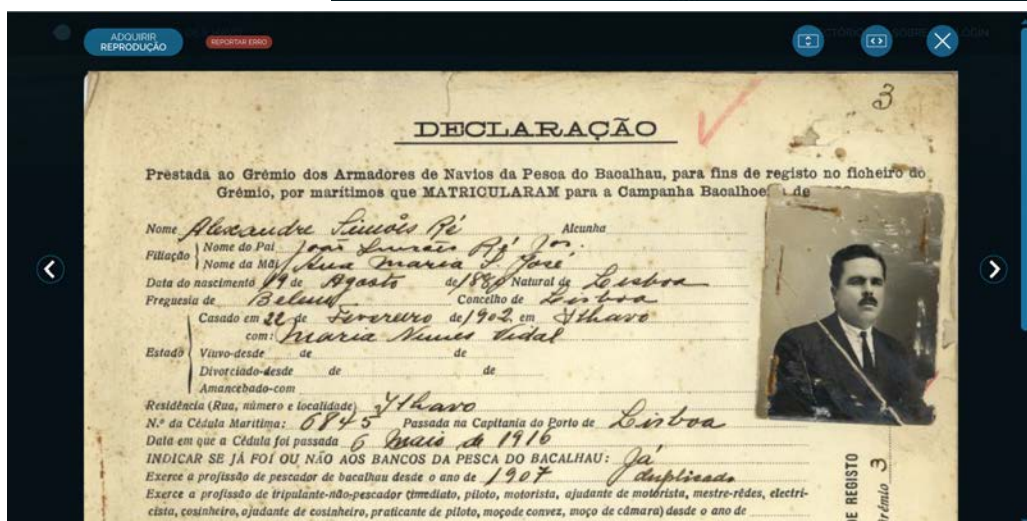 ADQUIRIR
REPRODUÇÃO
REPORTAR ERRO
3
DECLARAÇÃO
Prestada ao Grémio dos Armadores de Navios da Pesca do Bacalhau, para fins de registo no ficheiro do
Grémio, por marítimos que MATRICULARAM para a Campanha Bacalhoeira de
Nome Alexandre Simões Ré Alcunha
Filiação
Nome do Pai João Simões Ré Jor.
Nome da Mãi Ana Maria S. José
Data do nascimento 19 de Agosto de 1880 Natural de Lisboa
Freguesia de Belem Concelho de Lisboa
Casado em 22 de Fevereiro de 1902 em Ilhavo
com: Maria Nunes Vidal
Estado
Viuvo-desde de de
Divorciado-desde de de
Amancebado-com
Residência (Rua, número e localidade) Ilhavo
N.º da Cédula Marítima: 6845 Passada na Capitania do Porto de Lisboa
Data em que a Cédula foi passada 6 Maio de 1916
INDICAR SE JÁ FOI OU NÃO AOS BANCOS DA PESCA DO BACALHAU: Já
Exerce a profissão de pescador de bacalhau desde o ano de 1907 duplicado
Exerce a profissão de tripulante-não-pescador (imediato, piloto, motorista, ajudante de motorista, mestre-rêdes, electri-
cista, cosinheiro, ajudante de cosinheiro, praticante de piloto, moço de convez, moço de câmara) desde o ano de
E REGISTO
rémio 3